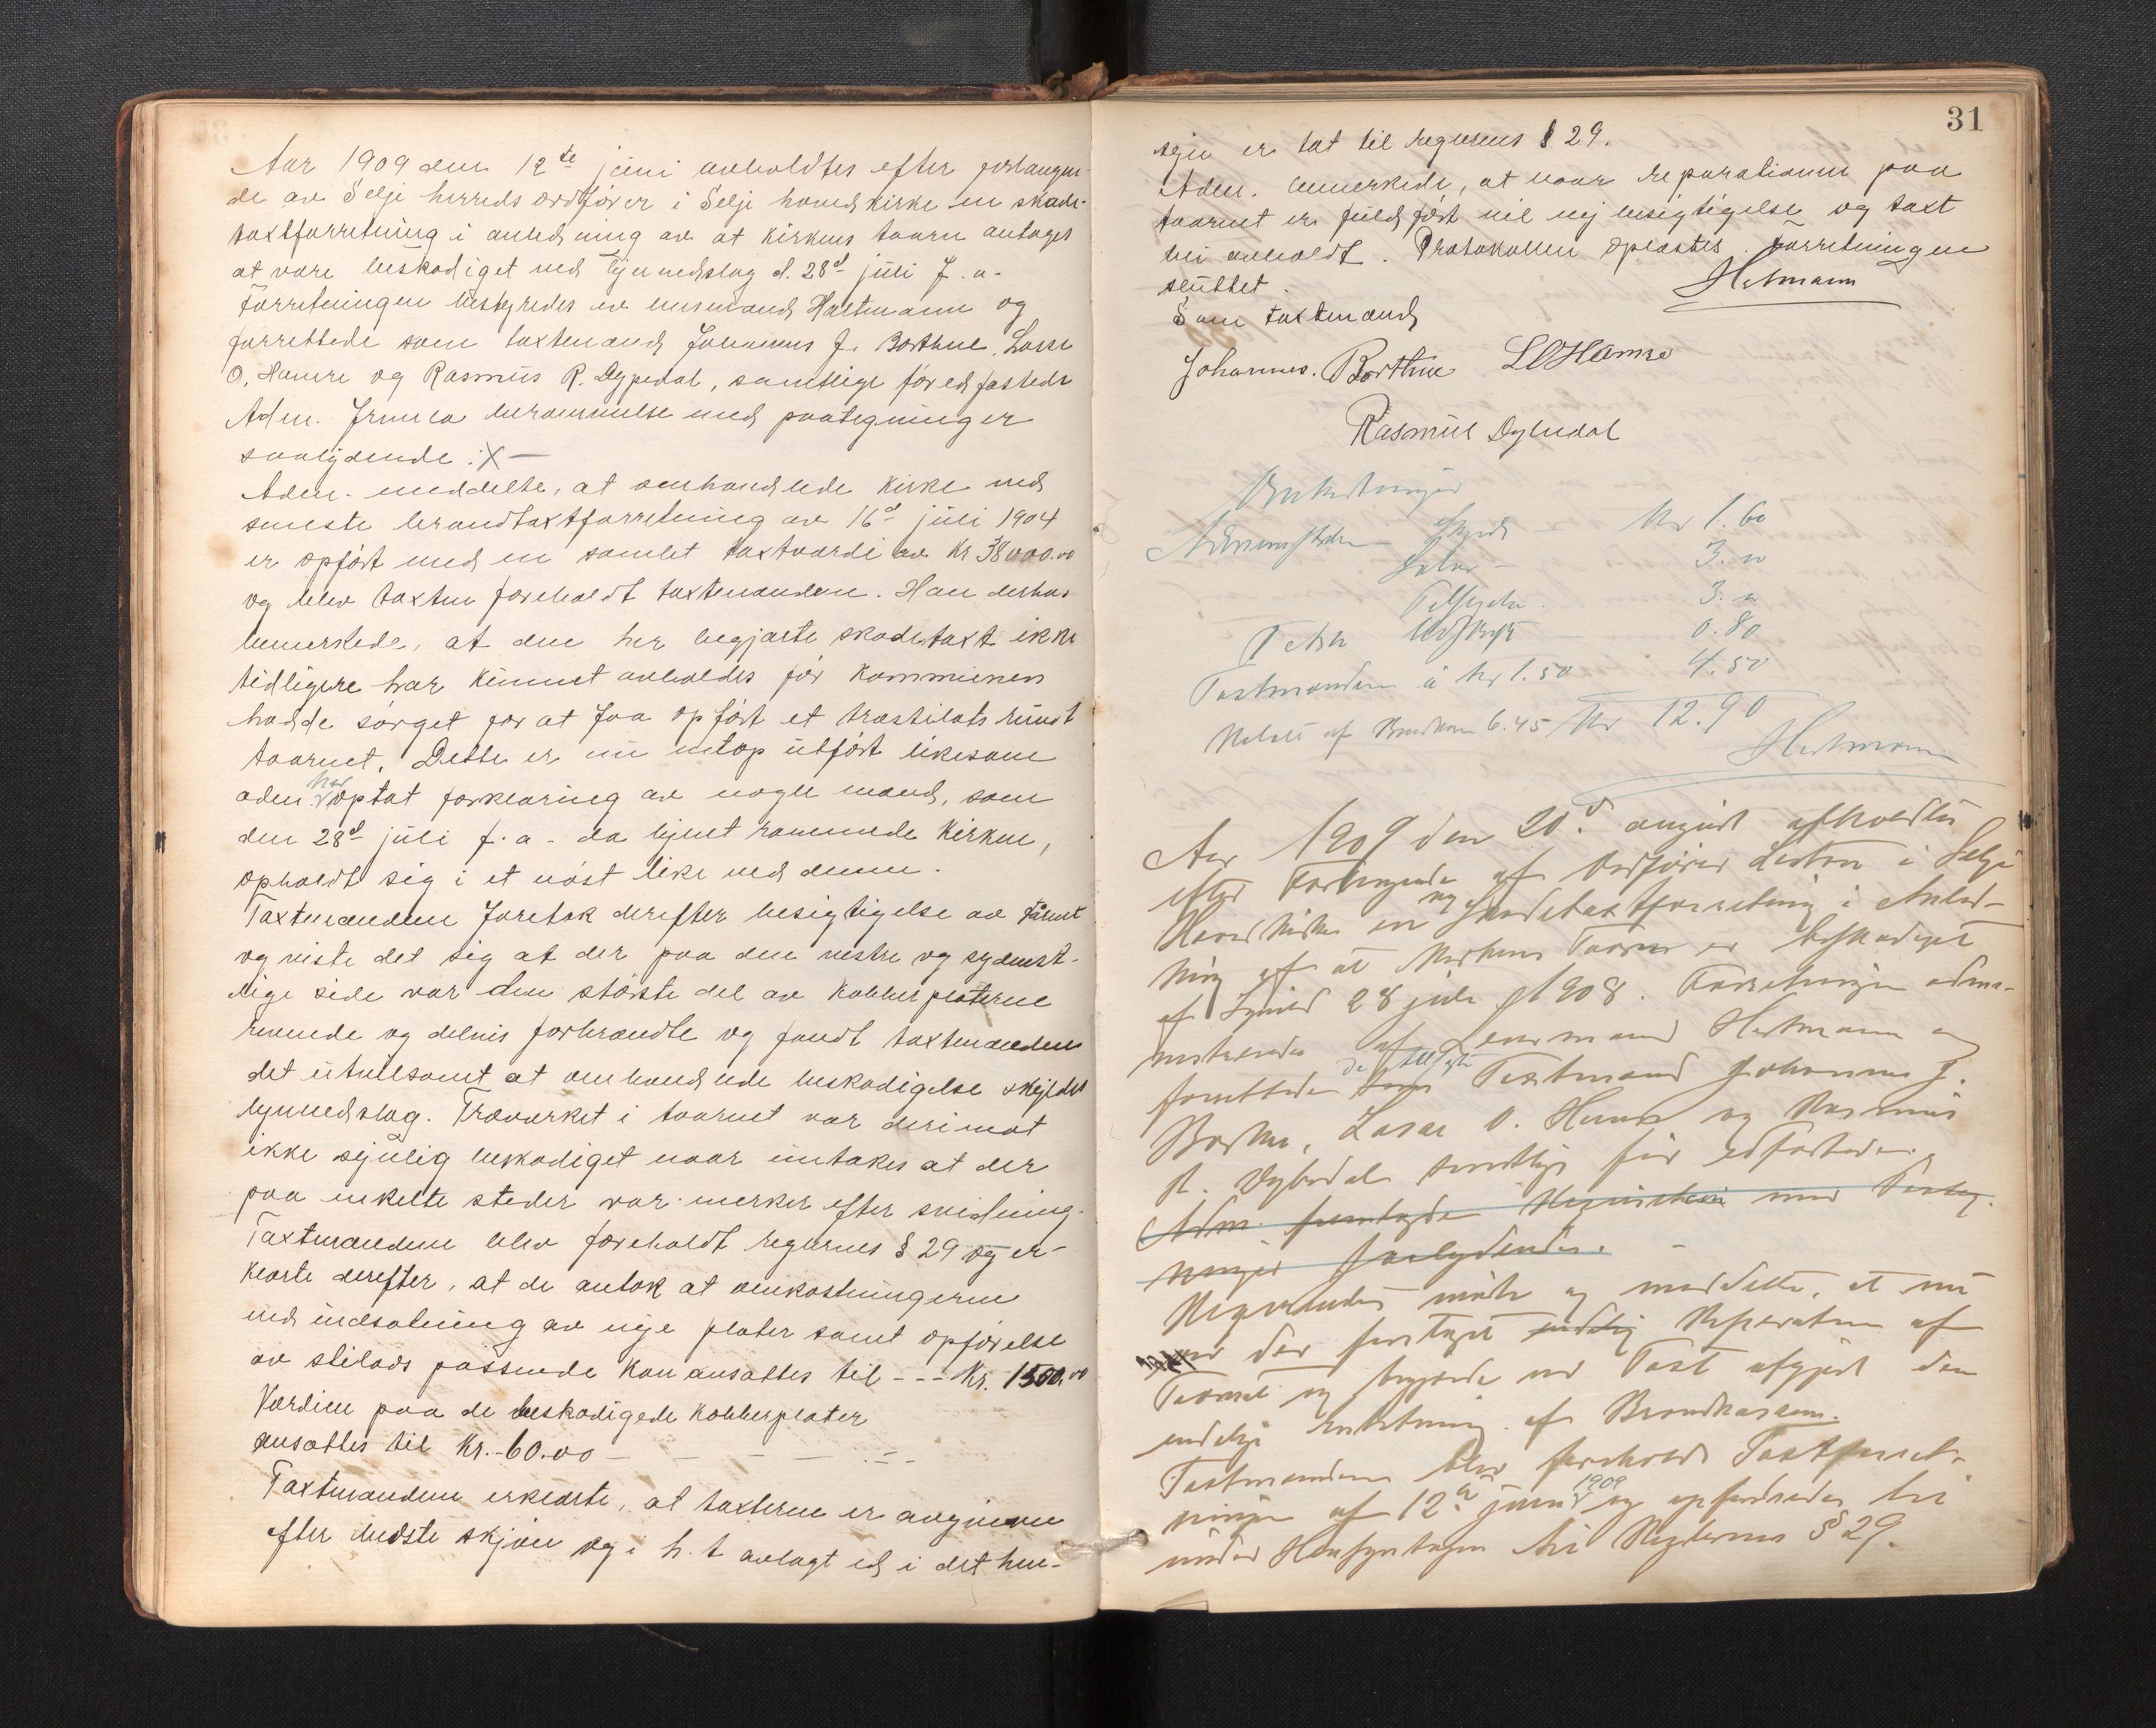 Aar 1909 den 12te juni avholdtes efter forlangen-
de av Selje herreds ordfører i Selje hovedkirke en skade-
taxtforretning i anledning av at kirkens taarn antages
at være beskadiget ved lynnedslag d. 28d juli f. a.
Forretningen bestyredes av lensmand Hartmann og
forrettede som taxtmænd Johannes J. Borthne, Lasse
O. Hamre og Rasmus R. Dypedal, samtlige før edfæstede
Adm. fremla berammelse med paategninger
saalydende :X —
Adm. meddelte, at omhandlede kirke ved
seneste brandtaxtforretning av 16d juli 1904
er opført med en samlet taxtværdi av Kr 38000.00
og blev taxten foreholdt taxtmændene. Han derhos
bemerkede, at den her begjærte skadetaxt ikke
tidligere har kunnet avholdes før kommunen
hadde sørget for at faa opført et træstilads rundt
taarnet. Dette er nu netop utført likesom
adm. har optat forklaring av nogle mænd, som
den 28d juli f. a. da lynet rammede kirken,
opholdt sig i et nøst like ved denne.
Taxtmændene foretok derefter besigtigelse av taarnet
og viste det sig at der paa den vestre og sydøst-
lige side var den største del av kobberplaterne
revnede og delvis forbrændte og fandt taxtmændene
det utvilsomt at omhandlede beskadigelse skyldes
lynnedslag. Træverket i taarnet var derimot
ikke synlig beskadiget naar undtakes at der
paa enkelte steder var merker efter svidning.
Taxtmændene blev foreholdt reglernes § 29 og er-
klærte derefter, at de antok at omkostningerne
ved indsætning av nye plater samt opførelse
av stilads passende kan ansættes til --- Kr. 1500.00
Værdien paa de beskadigede kobberplater
ansættes til Kr. 60.00 — — — — . - -
Taxtmændene erklærte, at taxterne er avgivne
efter bedste skjøn og i h. t avlagt ed i det hen-
31
seje er tat til reglernes § 29.
Adm. bemerkede, at naar reparationen paa
taarnet er fuldført vil ny besigtigelse og taxt
bli avholdt. Protokollen oplæstes. Forretningen
sluttet.
Hartmann
Som taxtmænd
Johannes. Borthne LOHamre
Rasmus Dypedal
Skyds Kr 1.60
3.00
3.00
0.80
Taxtmændene á Kr 1.50 4.50
af 6.45 Kr 12.90
Hartmann
Aar 1909 den 20d. august afholdtes
efter Forlangende af Ordfører i Selje
Hovedkirke en ny Skadetaxtforretning i Anled-
ning af at Kirkens Taarn er beskadiget
af Lynild 28 juli 1908. Forretningen admi-
nistreredes af Lensmand Hartmann og
forrettede som Taxtmænd Johannes J.
Borthne, Lasse O. Hamre og Rasmus
R. Dypedal samtlige før edfæstede.
Adm. fremlagde Rekvisition med Paateg-
ninger saalydende. —
Rekvirenten mødte og meddelte, at nu
var der foretaget endelig Reparation af
Taarnet og begjærede ved Taxt afgjort den
endelige Erstatning af Brandkassen.
Taxtmændene blev foreholdt Taxtforret-
ningen af 12te juni 1909 og opfordredes til
under Hensyntagen til Reglernes § 29.